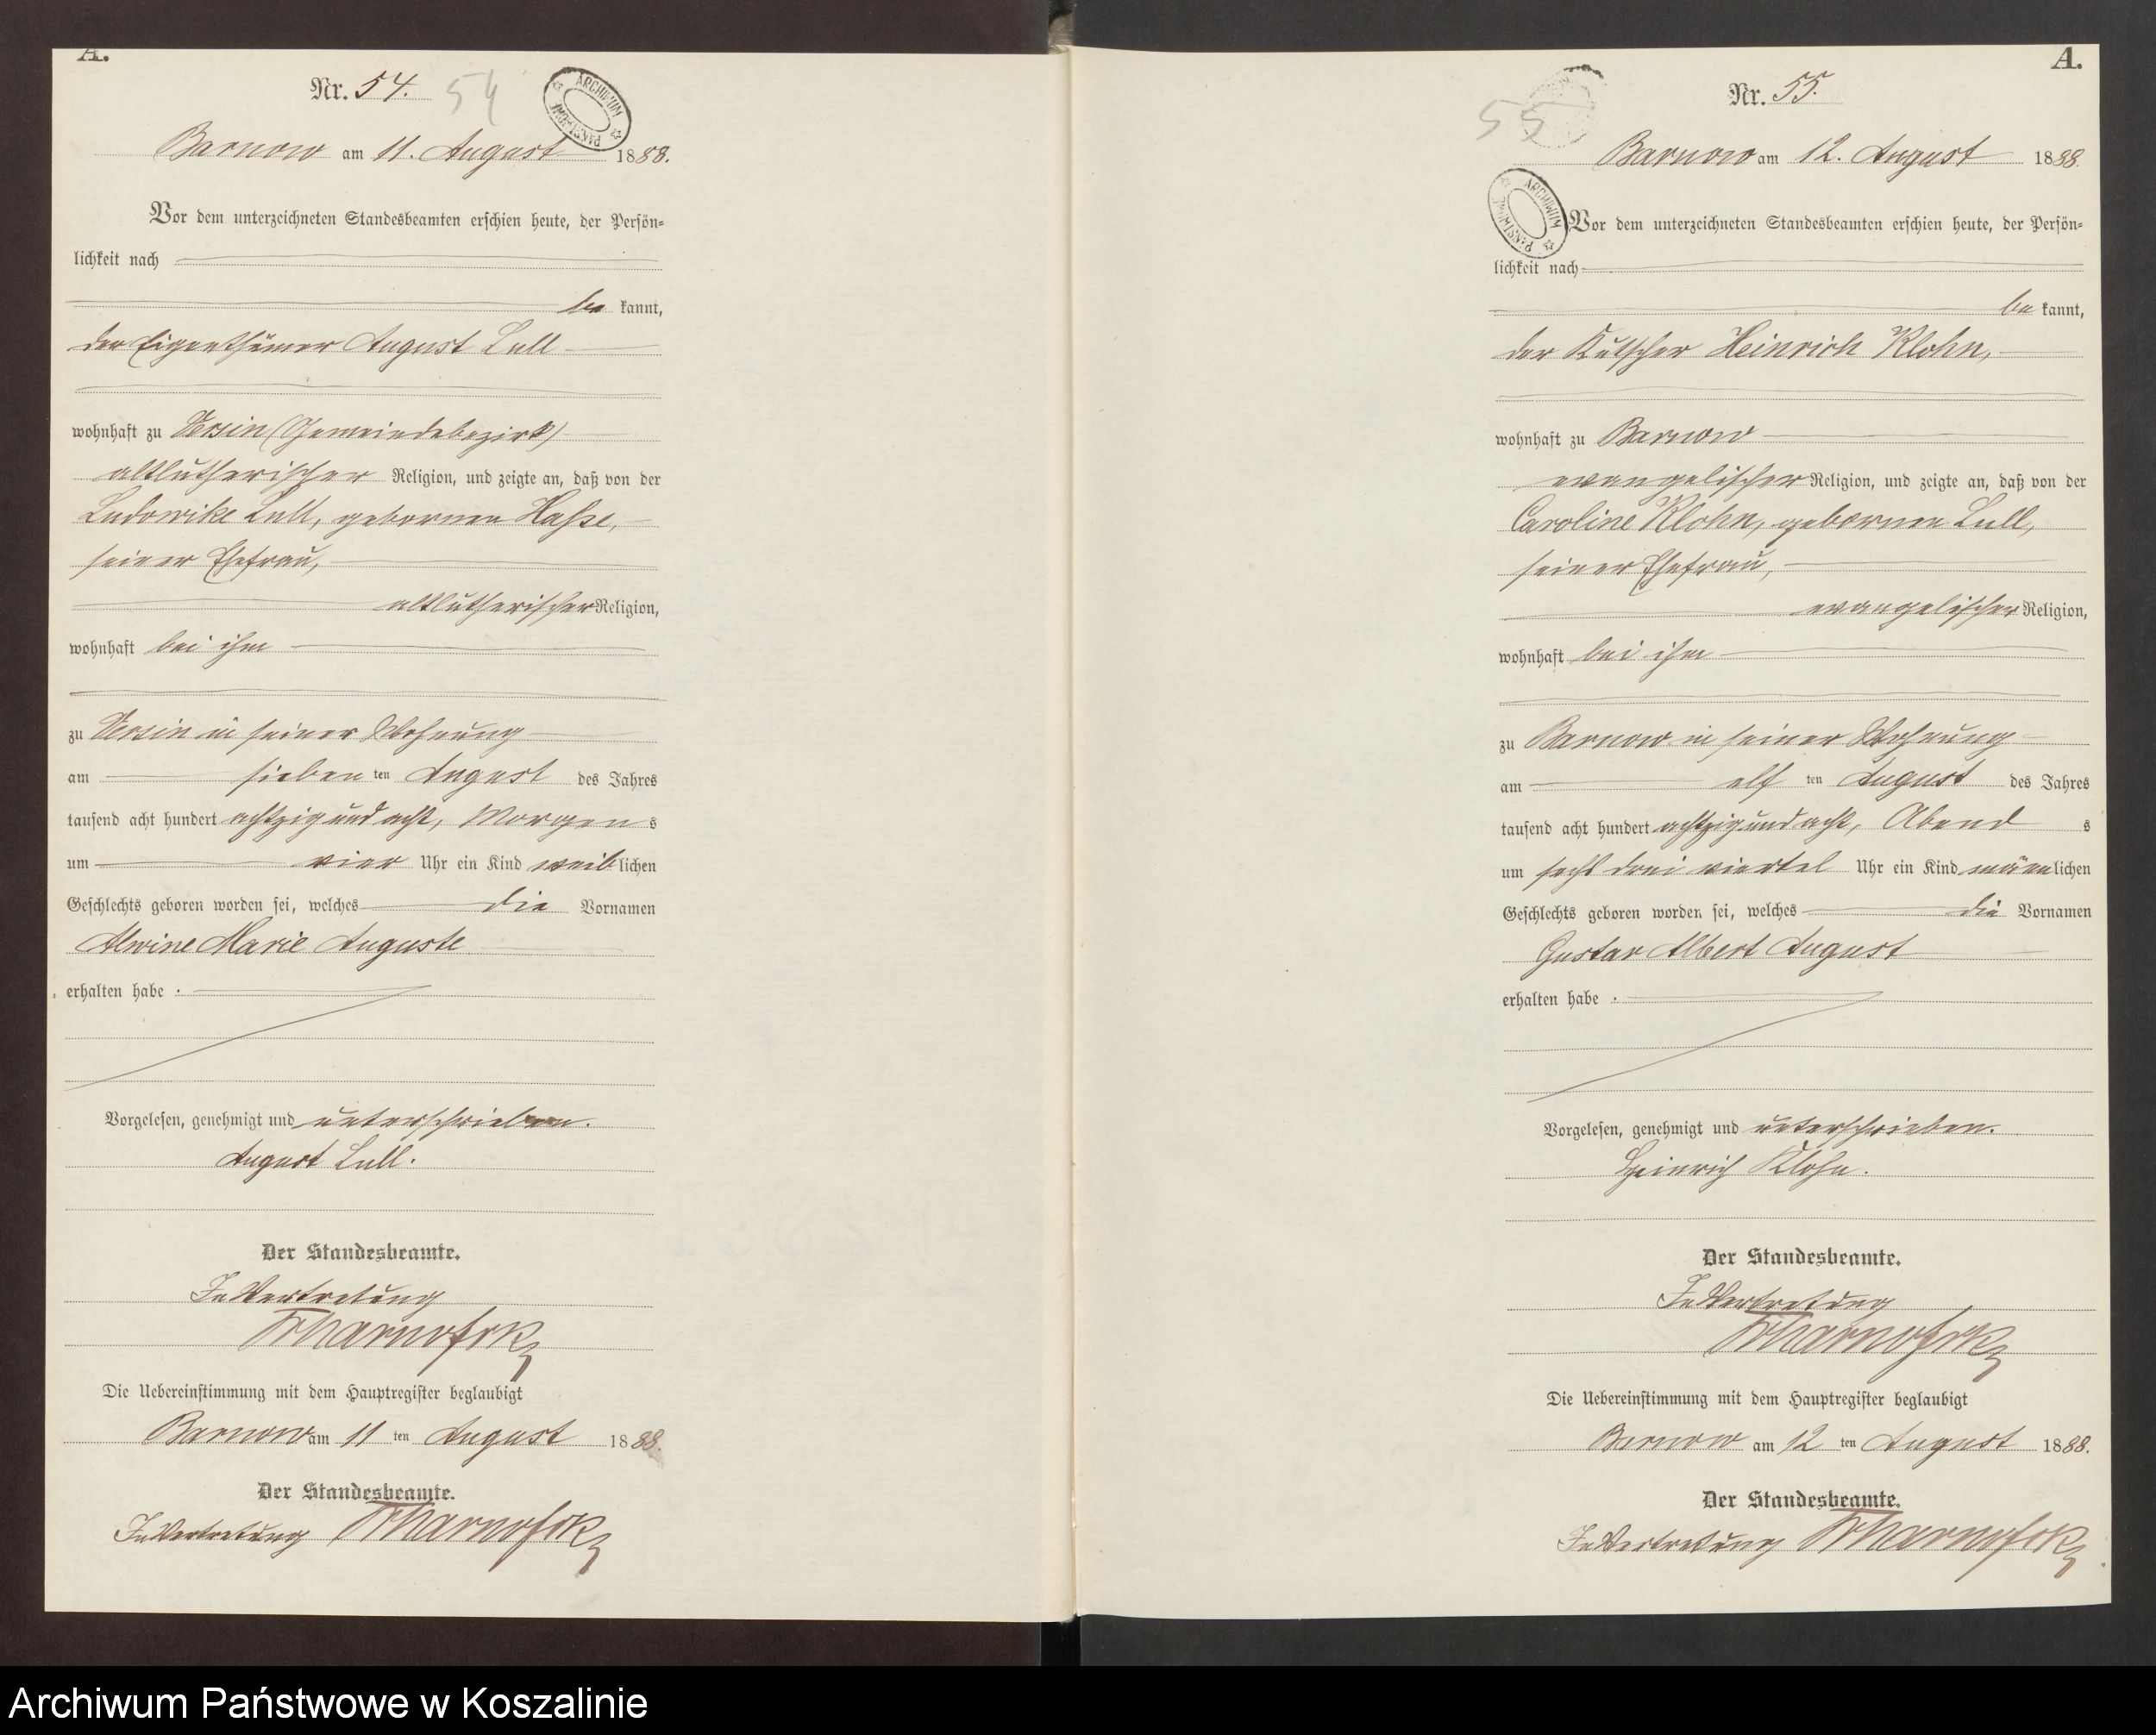 A.
Nr. 54. 54
ARCHIWUM PAŃSTWOWE
Barnow am 11. August 1888.
Vor dem unterzeichneten Standesbeamten erschien heute, der Persön-
lichkeit nach
be kannt,
der Eigenthümer August Lull
wohnhaft zu Versin (Gemeindebezirk)
altlutherischer Religion, und zeigte an, daß von der
Ludowike Lull, geborenen Hasse,
seiner Ehefrau,
altlutherischer Religion,
wohnhaft bei ihm
zu Versin in seiner Wohnung
am sieben ten August des Jahres
tausend acht hundert achtzig und acht, Morgen s
um vier Uhr ein Kind weib lichen
Geschlechts geboren worden sei, welches die Vornamen
Alwine Marie Auguste
erhalten habe .
Vorgelesen, genehmigt und unterschrieben.
August Lull.
Der Standesbeamte.
In Vertretung
Die Uebereinstimmung mit dem Hauptregister beglaubigt
Barnow am 11 ten August 1888.
Der Standesbeamte.
In Vertretung
A.
Nr. 55.
55
Barnow am 12. August 1888.
ARCHIWUM PAŃSTWOWE
Vor dem unterzeichneten Standesbeamten erschien heute, der Persön-
lichkeit nach
be kannt,
der Kutscher Heinrich Klohn,
wohnhaft zu Barnow
evangelischer Religion, und zeigte an, daß von der
Caroline Klohn, geborenen Lull,
seiner Ehefrau,
evangelischer Religion,
wohnhaft bei ihm
zu Barnow in seiner Wohnung
am elf ten August des Jahres
tausend acht hundert achtzig und acht, Abend s
um sechs drei viertel Uhr ein Kind männ lichen
Geschlechts geboren worden sei, welches die Vornamen
Gustav Albert August
erhalten habe .
Vorgelesen, genehmigt und unterschrieben.
Heinrich Klohn.
Der Standesbeamte.
In Vertretung
Die Uebereinstimmung mit dem Hauptregister beglaubigt
Barnow am 12 ten August 1888.
Der Standesbeamte.
In Vertretung
Archiwum Państwowe w Koszalinie